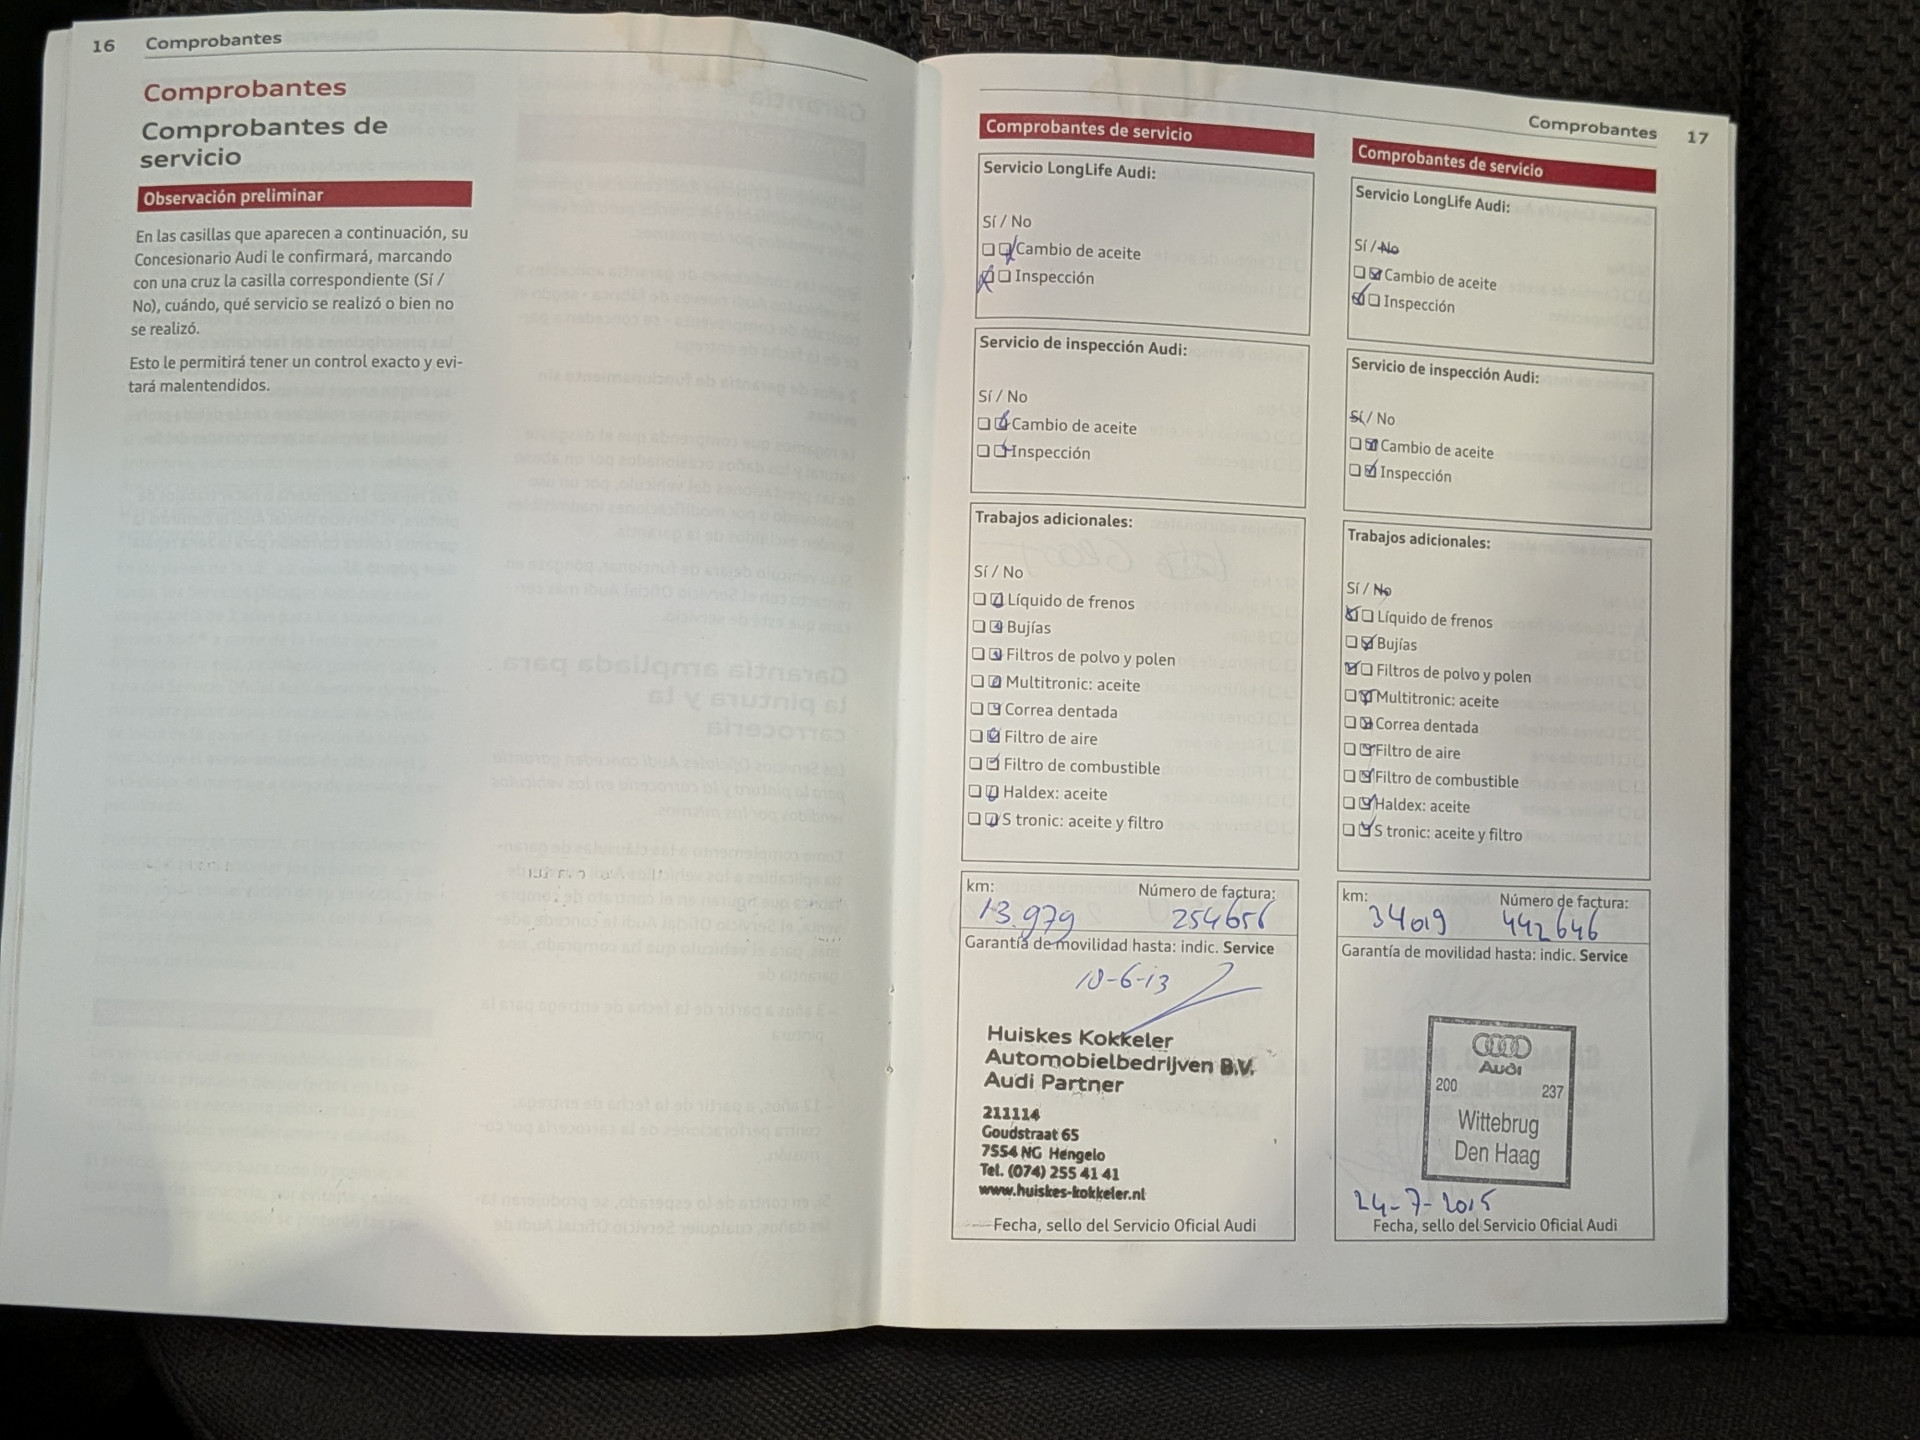 16 Comprobantes
Comprobantes
Comprobantes de
servicio
Observación preliminar
En las casillas que aparecen a continuación, su
Concesionario Audi le confirmará, marcando
con una cruz la casilla correspondiente (Sí /
No), cuándo, qué servicio se realizó o bien no
se realizó.
Esto le permitirá tener un control exacto y evi-
tará malentendidos.
Comprobantes 17
Comprobantes de servicio
Servicio LongLife Audi:
Sí / No
Cambio de aceite
Inspección
Servicio de inspección Audi:
Sí / No
Cambio de aceite
Inspección
Trabajos adicionales:
Sí / No
Líquido de frenos
Bujías
Filtros de polvo y polen
Multitronic: aceite
Correa dentada
Filtro de aire
Filtro de combustible
Haldex: aceite
S tronic: aceite y filtro
km: Número de factura:
13.979 254656
Garantía de movilidad hasta: indic. Service
10-6-13
Huiskes Kokkeler
Automobielbedrijven B.V.
Audi Partner
211114
Goudstraat 65
7554 NG Hengelo
Tel. (074) 255 41 41
www.huiskes-kokkeler.nl
Fecha, sello del Servicio Oficial Audi
Comprobantes de servicio
Servicio LongLife Audi:
Sí / No
Cambio de aceite
Inspección
Servicio de inspección Audi:
Sí / No
Cambio de aceite
Inspección
Trabajos adicionales:
Sí / No
Líquido de frenos
Bujías
Filtros de polvo y polen
Multitronic: aceite
Correa dentada
Filtro de aire
Filtro de combustible
Haldex: aceite
S tronic: aceite y filtro
km: Número de factura:
34019 442646
Garantía de movilidad hasta: indic. Service
Audi
200 237
Wittebrug
Den Haag
24-7-2015
Fecha, sello del Servicio Oficial Audi